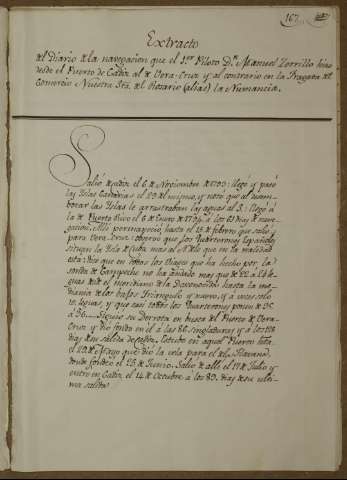 167
Extracto
del Diario de la navegacion que el 1.er Piloto D.n Manuel Zorrillo hizo
desde el Puerto de Cadiz al de Vera-Cruz y al contrario en la Fragata del
Comercio Nuestra Sra. del Rosario (alias) la Numancia.
Salió de Cadiz el 6 de Noviembre de 1793: llegó y pasó
las Islas Canarias el 29 del mismo, y notó que al
bocar las Islas le arrastraban las aguas al S.: llegó á
la de Puerto Rico el 6 de Enero de 1794 á los 61 dias de nave-
gacion. Alli permaneció hasta el 15 de febrero que salió
para Vera-Cruz: observó que los Quarterones Españoles
situan la Isla de Cuba mas al S. de lo que en la realidad
está: dice que en todos los viages que ha hecho por la
sonda de Campeche no ha andado mas que de 22 á 24 le-
guas desde el meridiano de la Desconocida hasta la me-
diania de los bajos Triangulo y nuevo, y á veces solo
leguas, y que casi todos los Quarterones ponen de 35
á 36. Siguió su Derrota en busca del Puerto de Vera-
Cruz y dió fondo en él á las 86 singladuras y á los 128
dias de su salida de Cadiz. Estubo en aquel Puerto hasta
el 22 de Mayo que dió la vela para el de la Havana
donde fondeó el 25 de Junio. Salió de alli el 17 de Julio y
entró en Cadiz el 14 de Octubre á los 89 dias de su ulti-
ma salida.